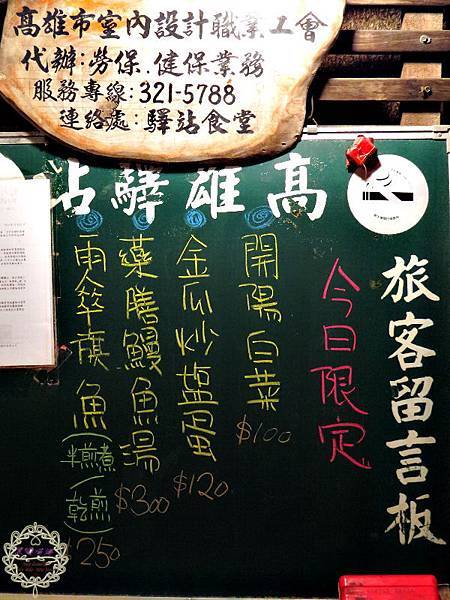 高雄市室內設計職業工會
代辦:勞保.健保業務
服務專線:321-5788
連絡處:驛站食堂
高雄驛站
旅客留言板
今日限定
開陽白菜
$100
金瓜炒鹽蛋
$120
藥膳鰻魚湯
$300
雨傘旗魚
(半煎煮/乾煎)
$250